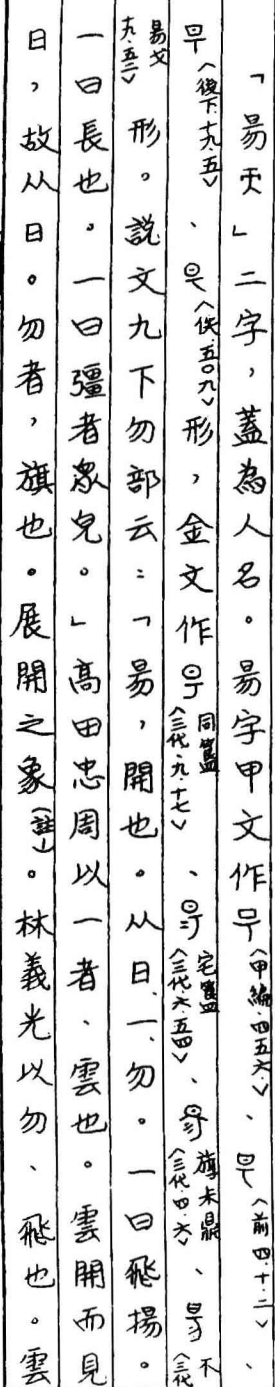 「昜天」二字，蓋為人名。昜字甲文作〈甲編·四五六〉、〈前四·十·二〉、
〈後下·十九·五〉、〈佚·五〇九〉形，金文作同簋〈三代·九·十七〉、宅簋〈三代·六·五四〉、旂未鼎〈三代·四·六〉、不〈三代
昜戈十九·五三〉形。說文九下勿部云：「昜，開也。从日、一、勿。一曰飛揚。
一曰長也。一曰彊者眾皃。」高田忠周以一者、雲也。雲開而見
日，故从日。勿者，旗也。展開之象〈註1〉。林義光以勿、飛也。雲